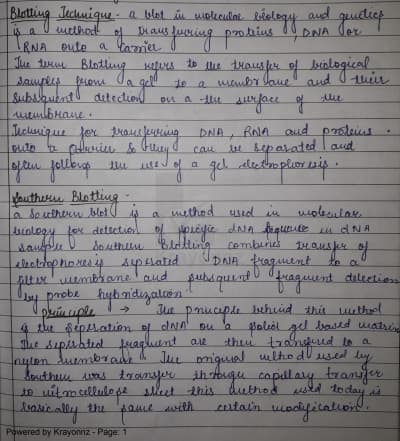 Blotting Technique - a blot in molecular biology and genetics
is a method of transfuring proteins, DNA or
RNA onto a carrier
The term Blotting refers to the transfer of biological
samples from a gel to a membrane and their
subsequent detection on a the surface of the
membrane.
Technique for transferring DNA, RNA and proteins.
onto a carrier & they can be separated and
often follows the use of a gel electrophoresis.
Southern Blotting -
a southern blot is a method used in molecular
biology for detection of specific dna sequence in dNA
sample Southern Blotting combines transfer of
electrophoresis seperated DNA fragment to a
filter membrane and subsequent fragment detection
by probe hybridization
principle → The principle behind this method
is the seperation of dNA on a gel based matrix
The seperated fragment are then transfured to a
nylon membrane The original method used by
Southern was transfer through capillary transfer
to nitrocellulose sheet this method used today is
basically the same with certain modification.
Powered by Krayonnz - Page: 1